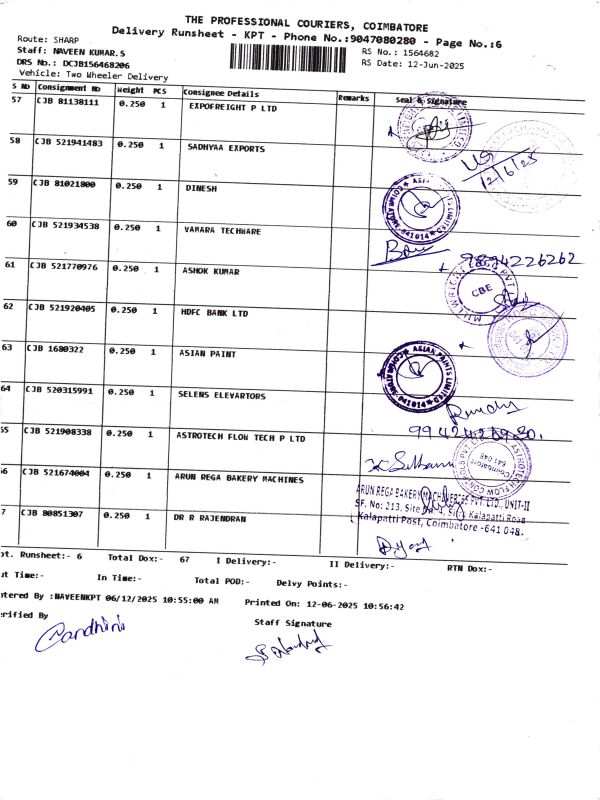 THE PROFESSIONAL COURIERS, COIMBATORE
Delivery Runsheet - KPT - Phone No.:9047080280 - Page No.:6
Route: SHARP
RS No. : 1564682
Staff: NAVEEN KUMAR.S
DRS No.: DCJB156468206
RS Date: 12-Jun-2025
Vehicle: Two Wheeler Delivery
S No Consignment No Weight PCS Consignee Details Remarks Seal & Signature
57 CJB 81138111 0.250 1 EXPOFREIGHT P LTD
58 CJB 521941483 0.250 1 SADHYAA EXPORTS
12/6/25
59 CJB 81021800 0.250 1 DINESH
60 CJB 521934538 0.250 1 VAMARA TECHWARE
9894226262
61 CJB 521770976 0.250 1 ASHOK KUMAR
CBE
62 CJB 521920405 0.250 1 HDFC BANK LTD
63 CJB 1680322 0.250 1 ASIAN PAINT
ASIAN PAINTS LIMITED
641014
64 CJB 520315991 0.250 1 SELENS ELEVARTORS
55 CJB 521908338 0.250 1 ASTROTECH FLOW TECH P LTD
Coimbatore
641 048
56 CJB 521674004 0.250 1 ARUN REGA BAKERY MACHINES
ARUN REGA BAKERY MACHINERIES PVT. LTD., UNIT-II
SF. No: 213, Site Kalapatti Road
Kalapatti Post, Coimbatore -641 048.
7 CJB 80851307 0.250 1 DR R RAJENDRAN
pt. Runsheet:- 6 Total Dox:- 67 I Delivery:- II Delivery:- RTN Dox:-
ut Time:- In Time:- Total POD:- Delvy Points:-
ntered By :NAVEENKPT 06/12/2025 10:55:00 AM Printed On: 12-06-2025 10:56:42
erified By
Staff Signature
Gandhini